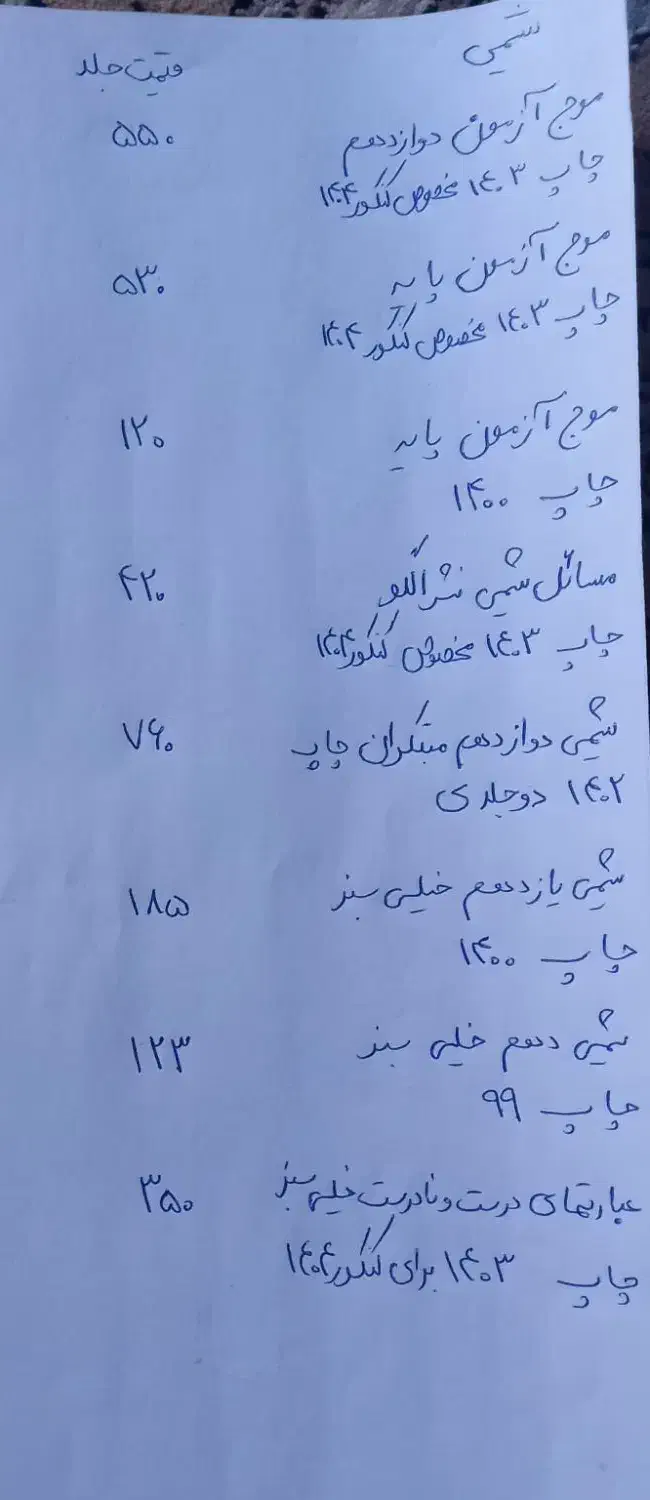 شیمی قیمت جلد
موج آزمون دوازدهم ۵۵۰
چاپ ۱۴۰۳ مخصوص کنکور ۱۴۰۴
موج آزمون پایه ۵۳۰
چاپ ۱۴۰۳ مخصوص کنکور ۱۴۰۴
موج آزمون پایه ۱۲۰
چاپ ۱۴۰۰
مسائل شیمی نشر الگو ۴۲۰
چاپ ۱۴۰۳ مخصوص کنکور ۱۴۰۴
شیمی دوازدهم مبتکران چاپ ۷۶۰
۱۴۰۲ دو جلدی
شیمی یازدهم خیلی سبز ۱۸۵
چاپ ۱۴۰۰
شیمی دهم خیلی سبز ۱۲۳
چاپ ۹۹
عبارتهای درست و نادرست خیلی سبز ۳۵۰
چاپ ۱۴۰۳ برای کنکور ۱۴۰۴